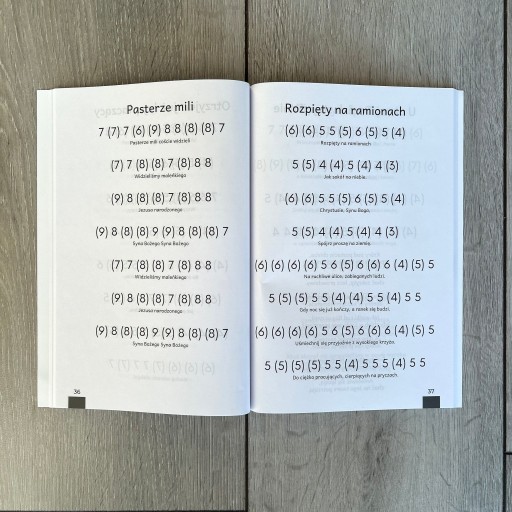 Pasterze mili
7 (7) 7 (6) (9) 8 8 (8) (8) 7
Pasterze mili coście widzieli
(7) 7 (8) (8) 7 (8) 8 8
Widzieliśmy maleńkiego
(9) 8 (8) (8) 7 (8) 8 8
Jezusa narodzonego
(9) 8 (8) (8) 9 (9) 8 (8) (8) 7
Syna Bożego Syna Bożego
(7) 7 (8) (8) 7 (8) 8 8
Widzieliśmy maleńkiego
(9) 8 (8) (8) 7 (8) 8 8
Jezusa narodzonego
(9) 8 (8) (8) 9 (9) 8 (8) (8) 7
Syna Bożego Syna Bożego
36
Rozpięty na ramionach
(6) (6) 5 5 (5) 6 (5) 5 (4)
Rozpięty na ramionach
5 (5) 4 (4) 5 (4) 4 (3)
Jak sokół na niebie.
(6) (6) 5 5 (5) 6 (5) 5 (4)
Chrystusie, Synu Boga,
5 (5) 4 (4) 5 (4) 4 (3)
Spójrz proszę na ziemię.
(6) (6) (6) (6) 5 6 (5) 6 (6) 6 (4) (5) 5
Na ruchliwe ulice, zabieganych ludzi,
5 (5) (5) (5) 5 5 (4) 5 5 (4) 5 5
Gdy noc się już kończy, a ranek się budzi.
(6) (6) (6) (6) 5 6 (5) 6 (6) 6 (4) (5) 5
Uśmiechnij się przyjaźnie z wysokiego krzyża,
5 (5) (5) (5) 5 5 (4) 5 5 5 (4) 5 5
Do ciężko pracujących, cierpiących na pryczach.
37